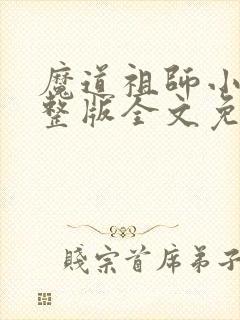 魔道祖師小
整版全文免
賤宗首席弟子